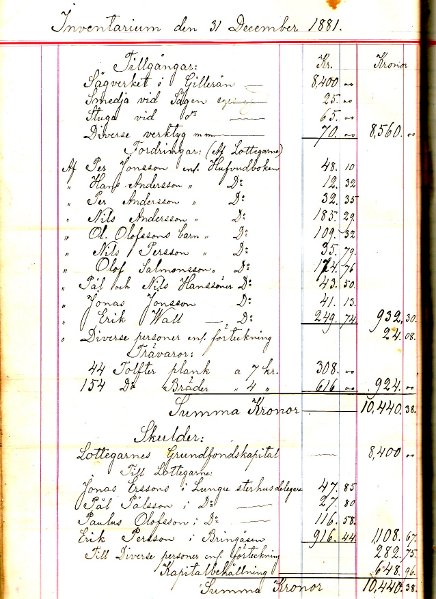 Inventarium den 31 December 1881.
Tillgångar: Kr. Kronor
Sågverket i Gillerån 8,400 "
Smedja vid Sågen 25. "
Stuga vid Do 65. "
Diverse verktyg m m 70. " 8,560. "
Fordringar: (Af Lottegarne)
Af Per Jonsson enl. Hufvudboken 48. 10
" Hans Andersson " Do 12. 32
" Per Andersson " Do 32. 35
" Nils Andersson " Do 185. 29
" Ol. Olofssons barn " Do 109. 32
" Nils Persson " Do 35. 79
" Olof Salmonsson " Do 174. 76
" Pål och Nils Hanssoner Do 43. 50
" Jonas Jonsson Do 41. 13
" Erik Wall Do 249. 74 932. 30
" Diverse personer enl. förteckning 24. 08.
Trävaror:
44 Tolfter plank a 7 kr. 308. "
154 Do Bräder " 4 " 616 " 924. "
Summa Kronor 10,440. 38.
Skulder:
Lottegarnes Grundfondskapital 8,400 "
Till Lottegarne
Jonas Erssons i Lungre sterbhusdelegare 47. 85
Pål Pålsson i Do 27. 80
Paulus Olofsson i Do 116. 58.
Erik Persson i Bringåsen 916. 44 1108. 67.
Till Diverse personer enl. förteckning 282. 75
Kapitalbehållning 648. 96.
Summa Kronor 10,440. 38.